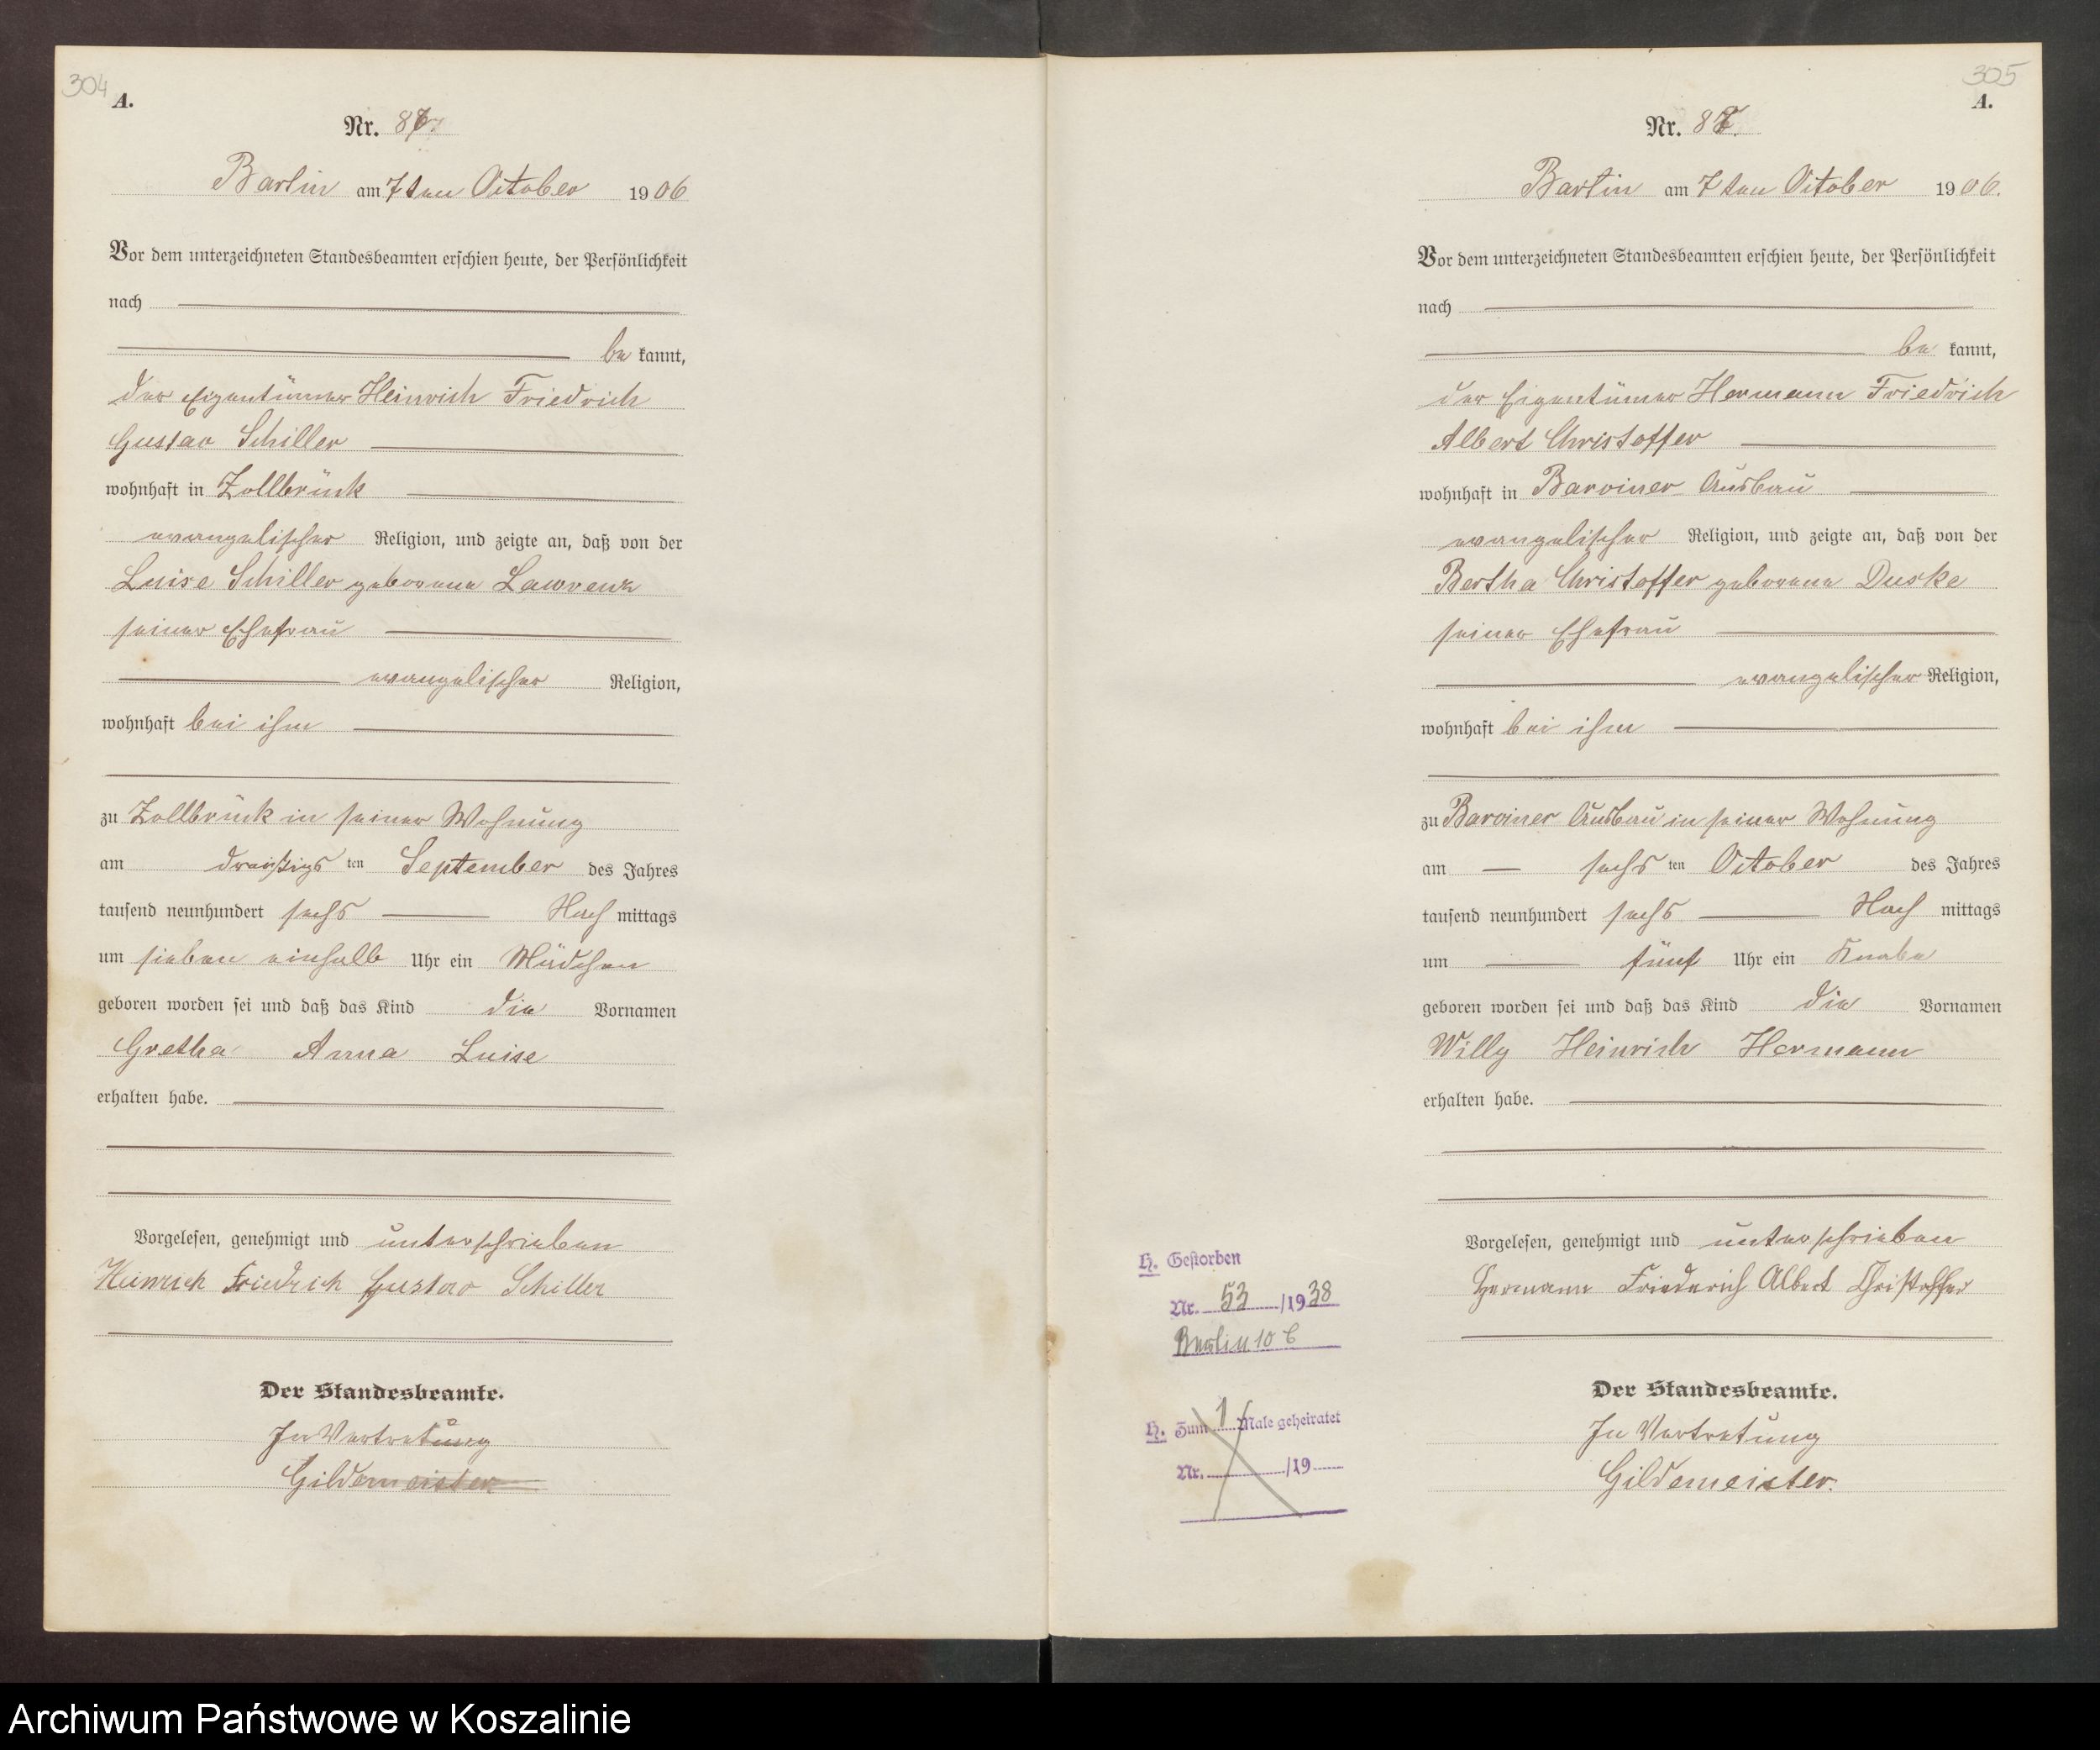 304
A.
Nr. 87
Bartin am 7ten October 1906
Vor dem unterzeichneten Standesbeamten erschien heute, der Persönlichkeit
nach
be kannt,
der Eigentümer Heinrich Friedrich
Gustav Schiller
wohnhaft in Zollbrück
evangelischer Religion, und zeigte an, daß von der
Luise Schiller geborene Lawrenz
seiner Ehefrau
evangelischer Religion,
wohnhaft bei ihm
zu Zollbrück in seiner Wohnung
am dreißigsten September des Jahres
tausend neunhundert sechs Nach mittags
um sieben einhalb Uhr ein Mädchen
geboren worden sei und daß das Kind die Vornamen
Gretha Anna Luise
erhalten habe.
Vorgelesen, genehmigt und unterschrieben
Heinrich Friedrich Gustav Schiller
Der Standesbeamte.
In Vertretung
Gildemeister
305
A.
Nr.
Bartin am 7ten October 1906.
Vor dem unterzeichneten Standesbeamten erschien heute, der Persönlichkeit
nach
be kannt,
der Eigentümer Hermann Friedrich
Albert Christoffer
wohnhaft in Barviner Ausbau
evangelischer Religion, und zeigte an, daß von der
Bertha Christoffer geborene Duske
seiner Ehefrau
evangelischer Religion,
wohnhaft bei ihm
zu Barviner Ausbau in seiner Wohnung
am sechsten October des Jahres
tausend neunhundert sechs Nach mittags
um fünf Uhr ein Knabe
geboren worden sei und daß das Kind die Vornamen
Willy Heinrich Hermann
erhalten habe.
Vorgelesen, genehmigt und unterschrieben
Hermann Friederich Albert Christoffer
Der Standesbeamte.
In Vertretung
Gildemeister.
H. Gestorben
Nr. 53 /1938
Berlin 10 b
H. Zum 1 Male geheiratet
Nr. /19
Archiwum Państwowe w Koszalinie